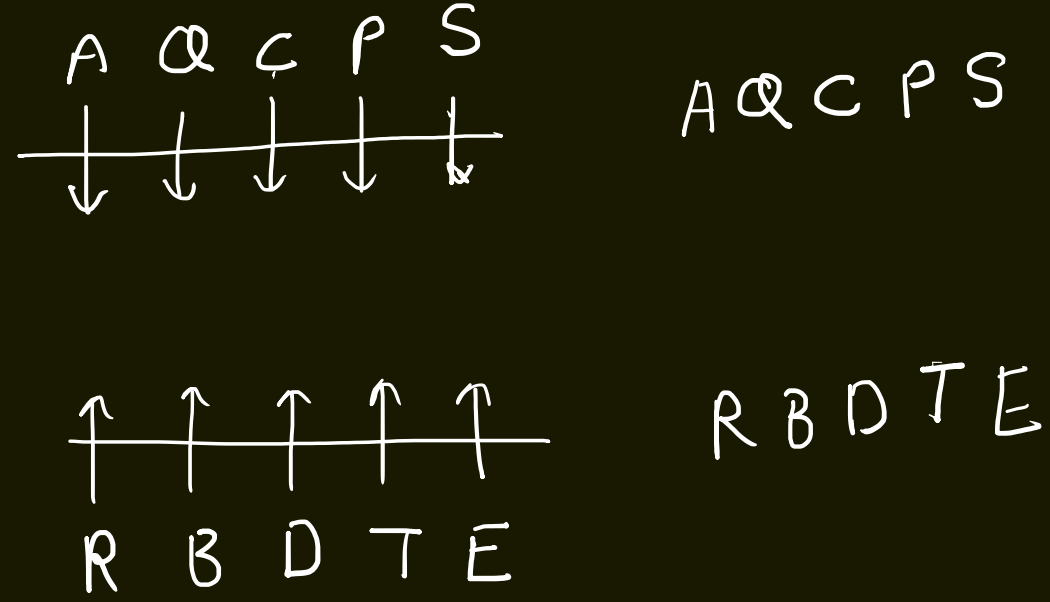 A Q C P S A Q C P S
R B D T E R B D T E